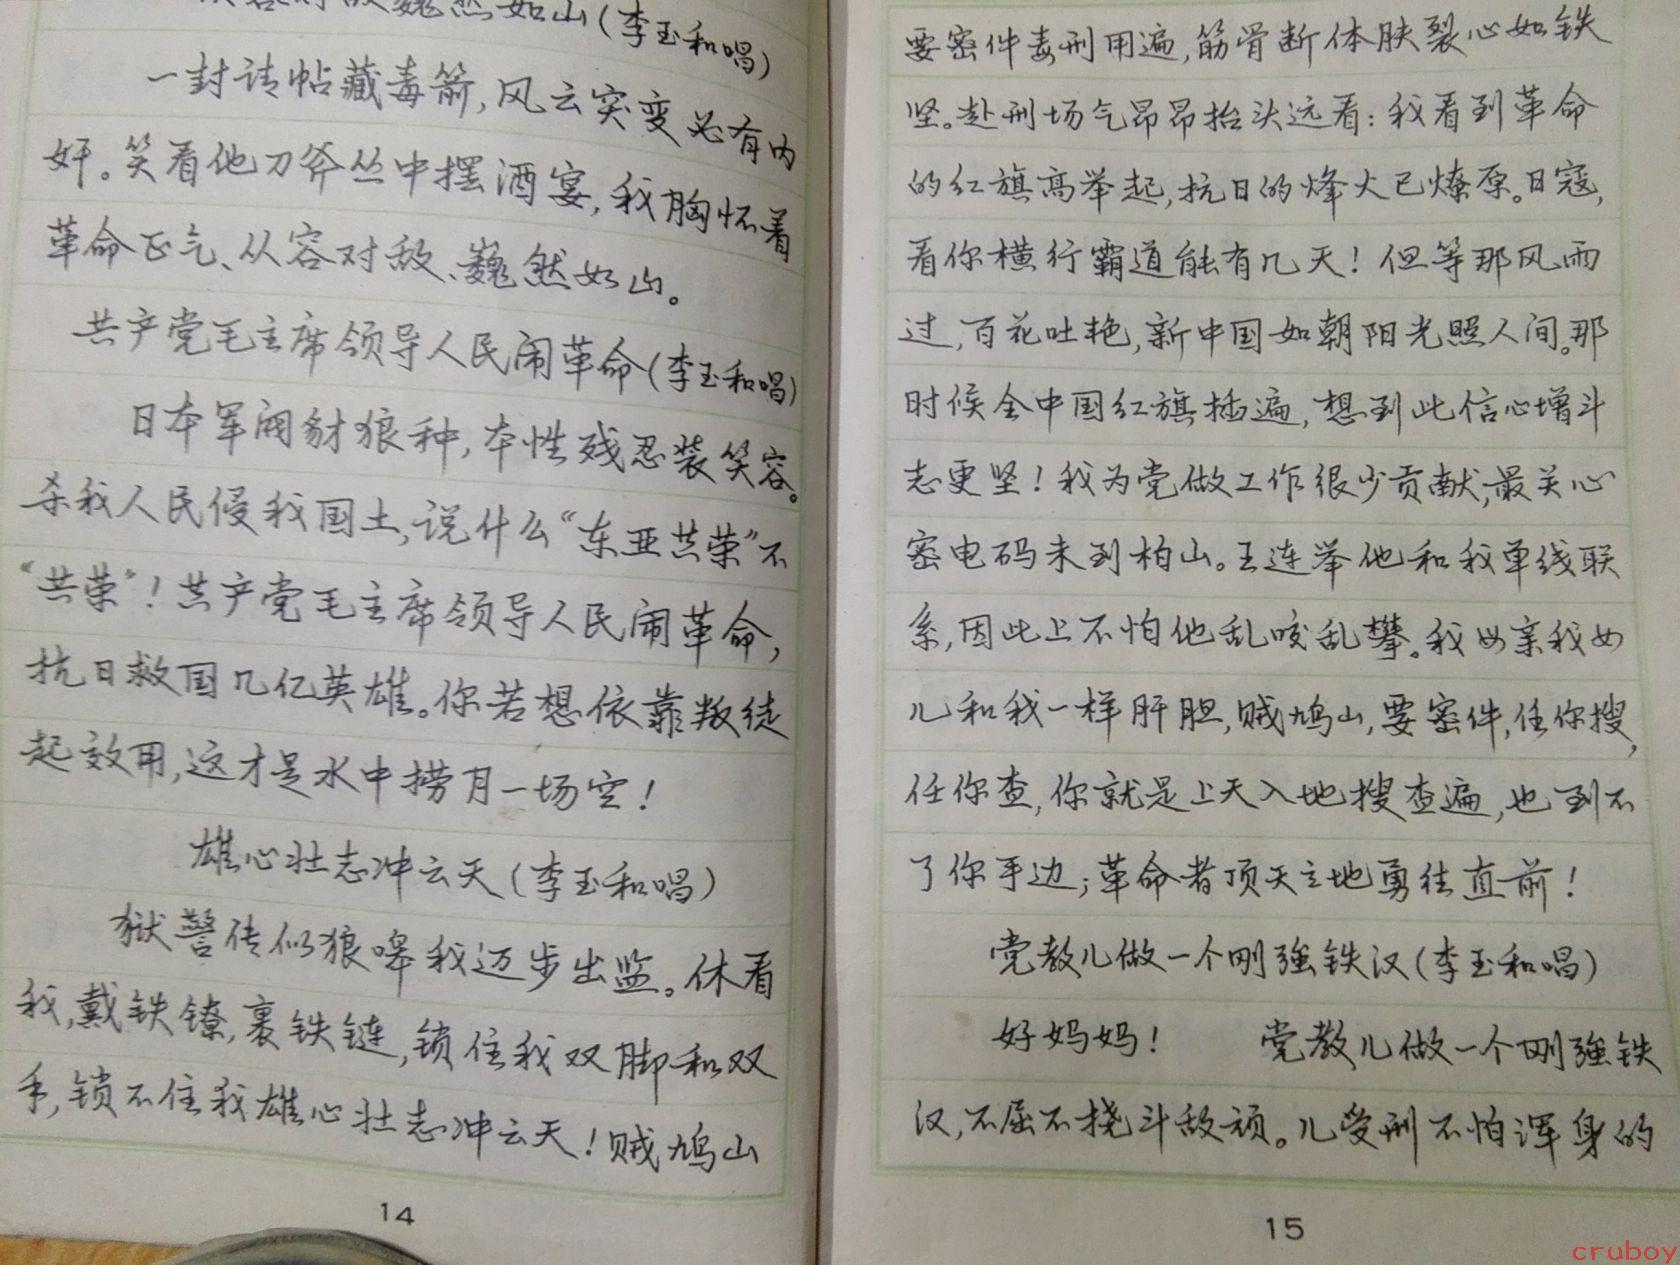 从容对敌巍然如山(李玉和唱)
一封请帖藏毒箭,风云突变必有内
奸。笑看他刀斧丛中摆酒宴,我胸怀着
革命正气、从容对敌、巍然如山。
共产党毛主席领导人民闹革命(李玉和唱)
日本军阀豺狼种,本性残忍装笑容。
杀我人民侵我国土,说什么“东亚共荣”不
“共荣”!共产党毛主席领导人民闹革命,
抗日救国几亿英雄。你若想依靠叛徒
起效用,这才是水中捞月一场空!
雄心壮志冲云天(李玉和唱)
狱警传似狼嗥我迈步出监。休看
我,戴铁镣,裹铁链,锁住我双脚和双
手,锁不住我雄心壮志冲云天!贼鸠山
14
要密件毒刑用遍,筋骨断体肤裂心如铁
坚。赴刑场气昂昂抬头远看:我看到革命
的红旗高举起,抗日的烽火已燎原。日寇,
看你横行霸道能有几天!但等那风雨
过,百花吐艳,新中国如朝阳光照人间。那
时候全中国红旗插遍,想到此信心增斗
志更坚!我为党做工作很少贡献,最关心
密电码未到柏山。王连举他和我单线联
系,因此上不怕他乱咬乱攀。我母亲我女
儿和我一样肝胆,贼鸠山,要密件,任你搜,
任你查,你就是上天入地搜查遍,也到不
了你手边;革命者顶天立地勇往直前!
党教儿做一个刚强铁汉(李玉和唱)
好妈妈! 党教儿做一个刚强铁
汉,不屈不挠斗敌顽。儿受刑不怕浑身的
15
cruboy